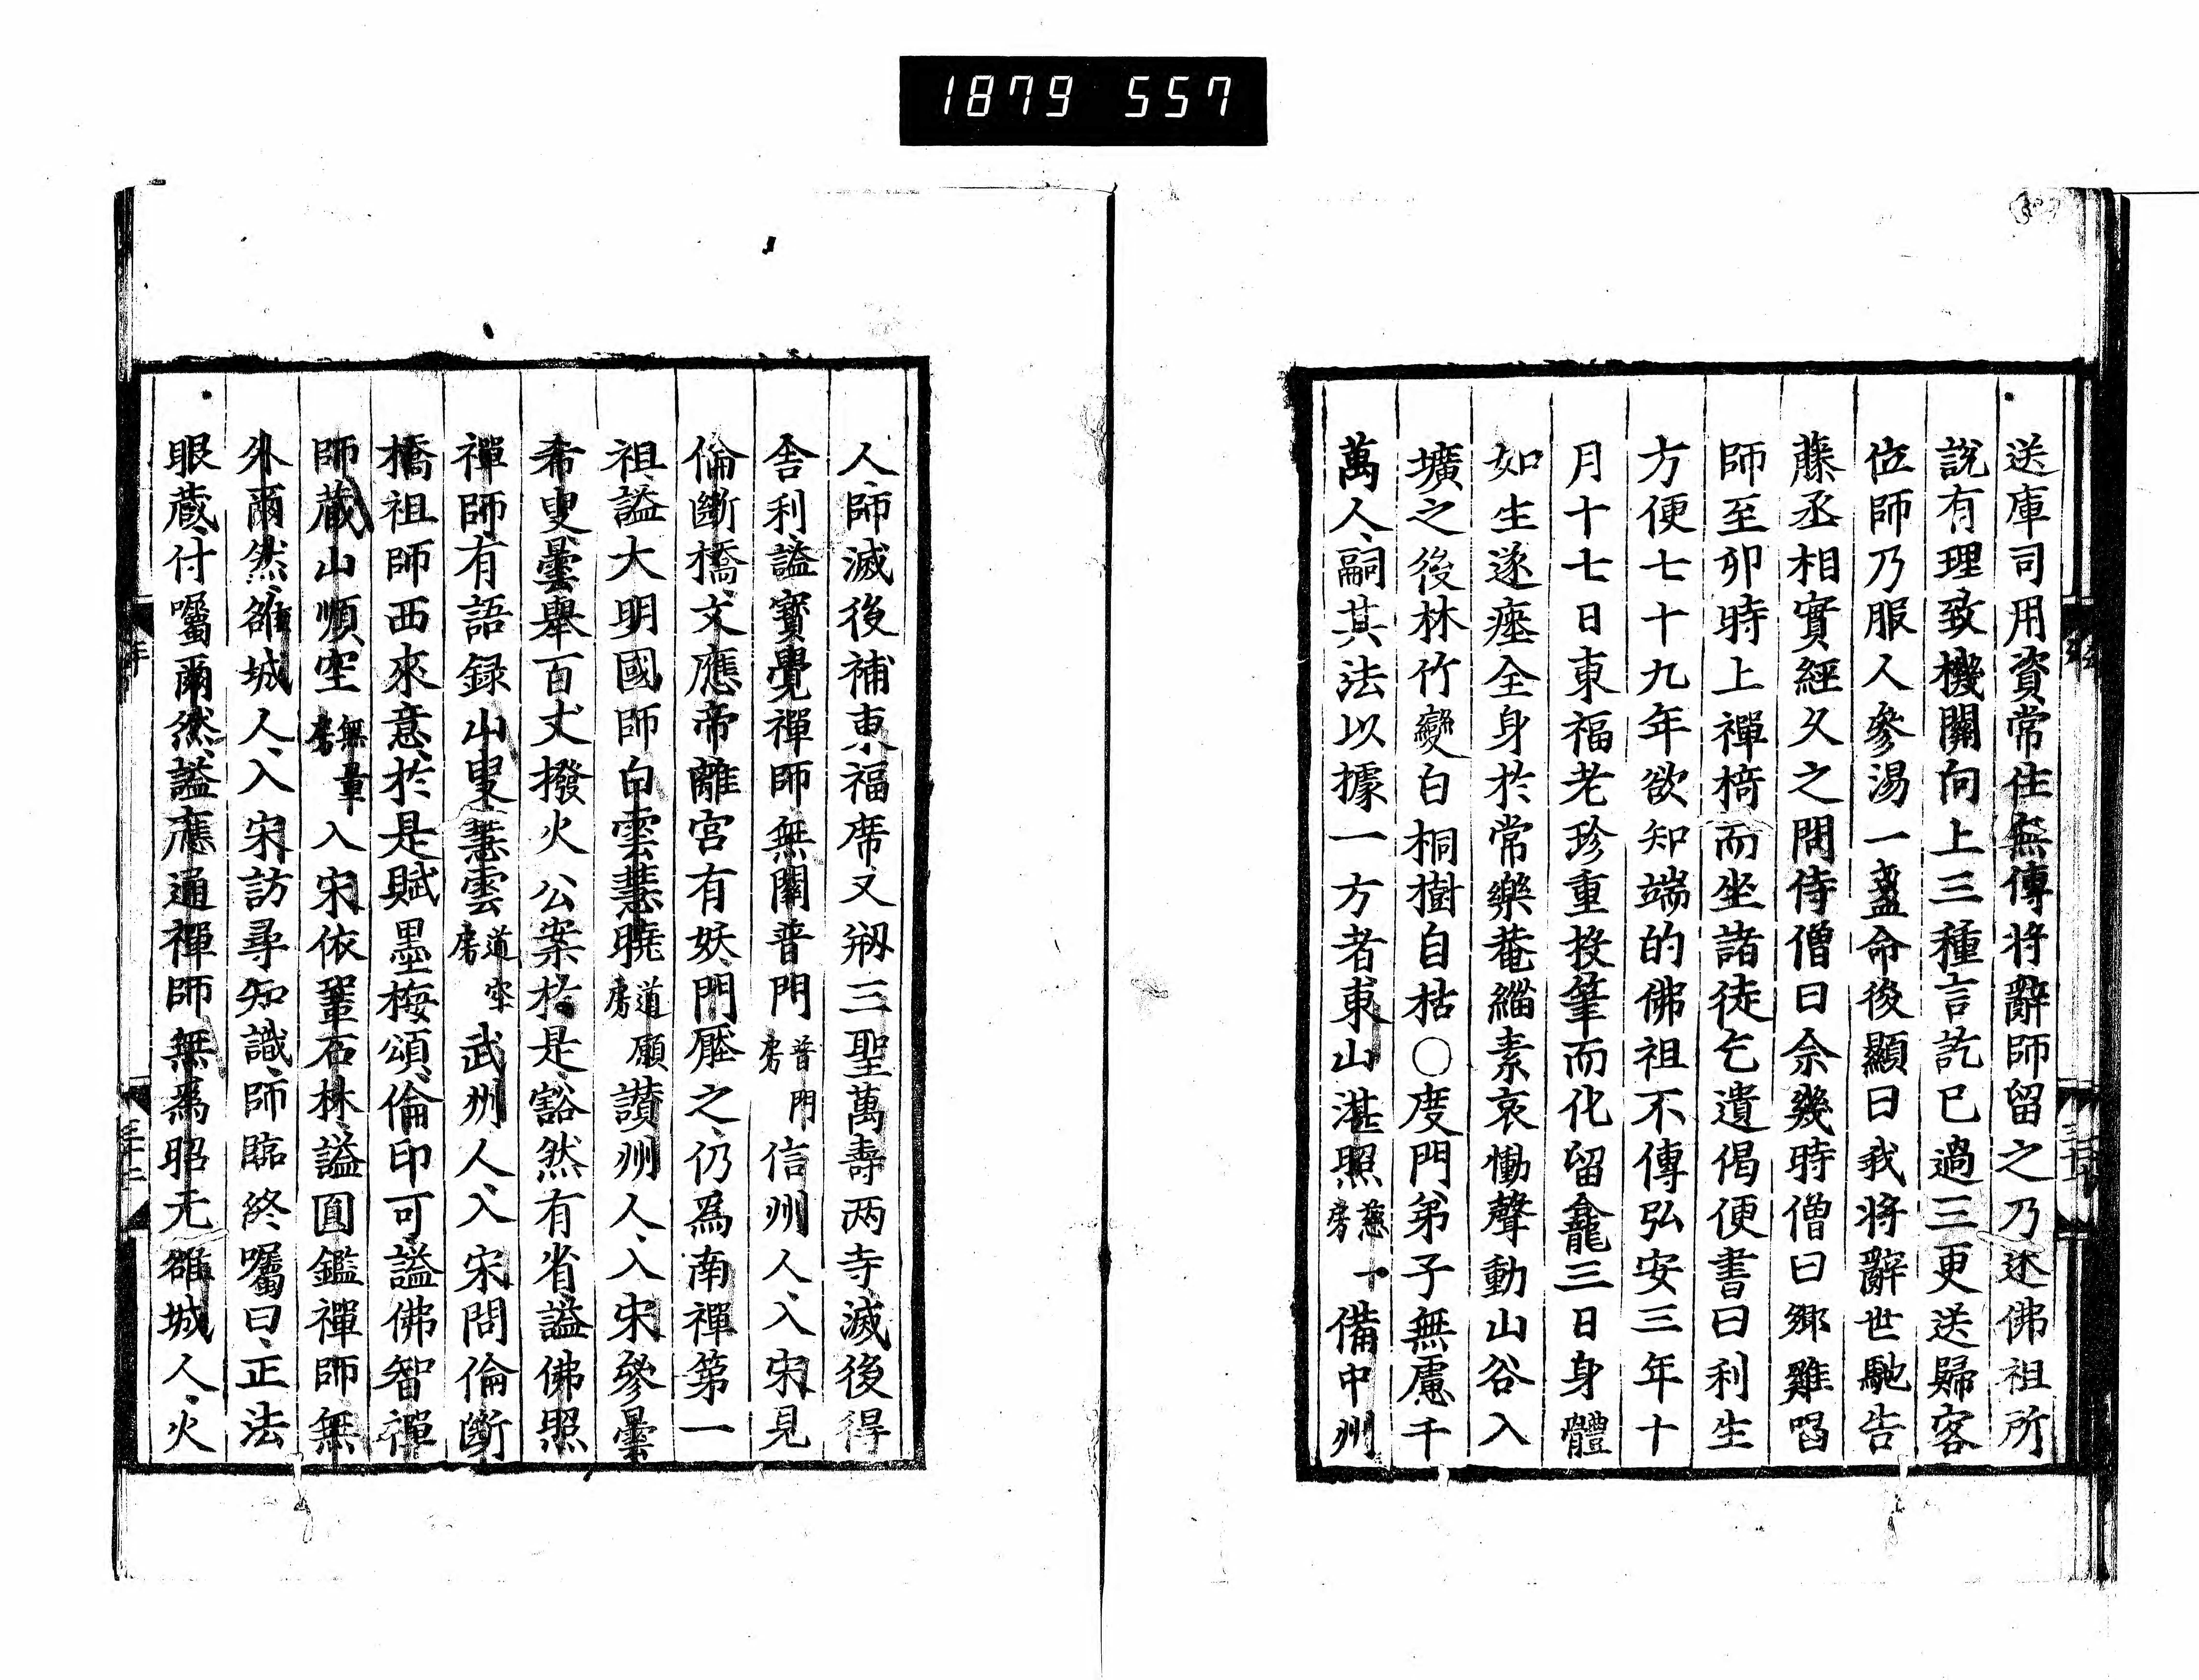 1879 557
送庫司用資常住無傳将辭師留之乃述佛祖所
說有理致機關向上三種言訖已過三更送歸客
位師乃服人參湯一盞命後顯曰我将辭世馳告
藤丞相實經久之問侍僧曰佘幾時僧曰鄉雞唱
師至卯時上禪椅而坐諸徒乞遺偈便書曰利生
方便七十九年欲知端的佛祖不傳弘安三年十
月十七日東福老珍重投筆而化留龕三日身體
如生遂塟全身於常樂菴緇素哀慟聲動山谷入
壙之後林竹變白桐樹自枯○度門弟子無慮千
萬人、嗣其法以據一方者東山湛照慈房備中州
人、師滅後補東福席、又剏三聖萬壽两寺滅後得
舎利、謚寳覺禪師、無關普門普門房信州人、入宋、見
倫斷橋、文應帝離宮有妖、門厭之、仍爲南禪第一
祖、謚大明國師白雲慧曉道願房讃州人、入宋參曇
希叟、曇舉百丈撥火公案於是豁然有省、謚佛照
禪師、有語録山叟慧雲道空房武州人、入宋問倫斷
橋祖師西來意、於是賦墨梅頌、倫印可謚佛智禪
師藏山順空無量房入宋依鞏石林、謚圓鑑禪師無
外爾然、雒城人、入宋訪尋知識、師臨終囑曰、正法
眼蔵、付囑爾然、謚應通禪師無爲昭元雒城人、火